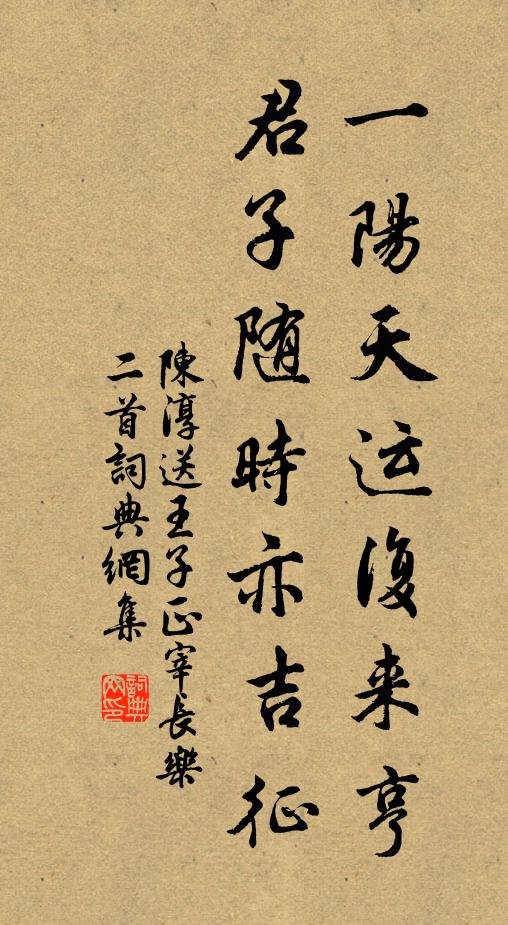 一陽天运復来亨
君子随時亦吉征
陳淳送王子正宰長樂
二首詞典網集
詞典網印